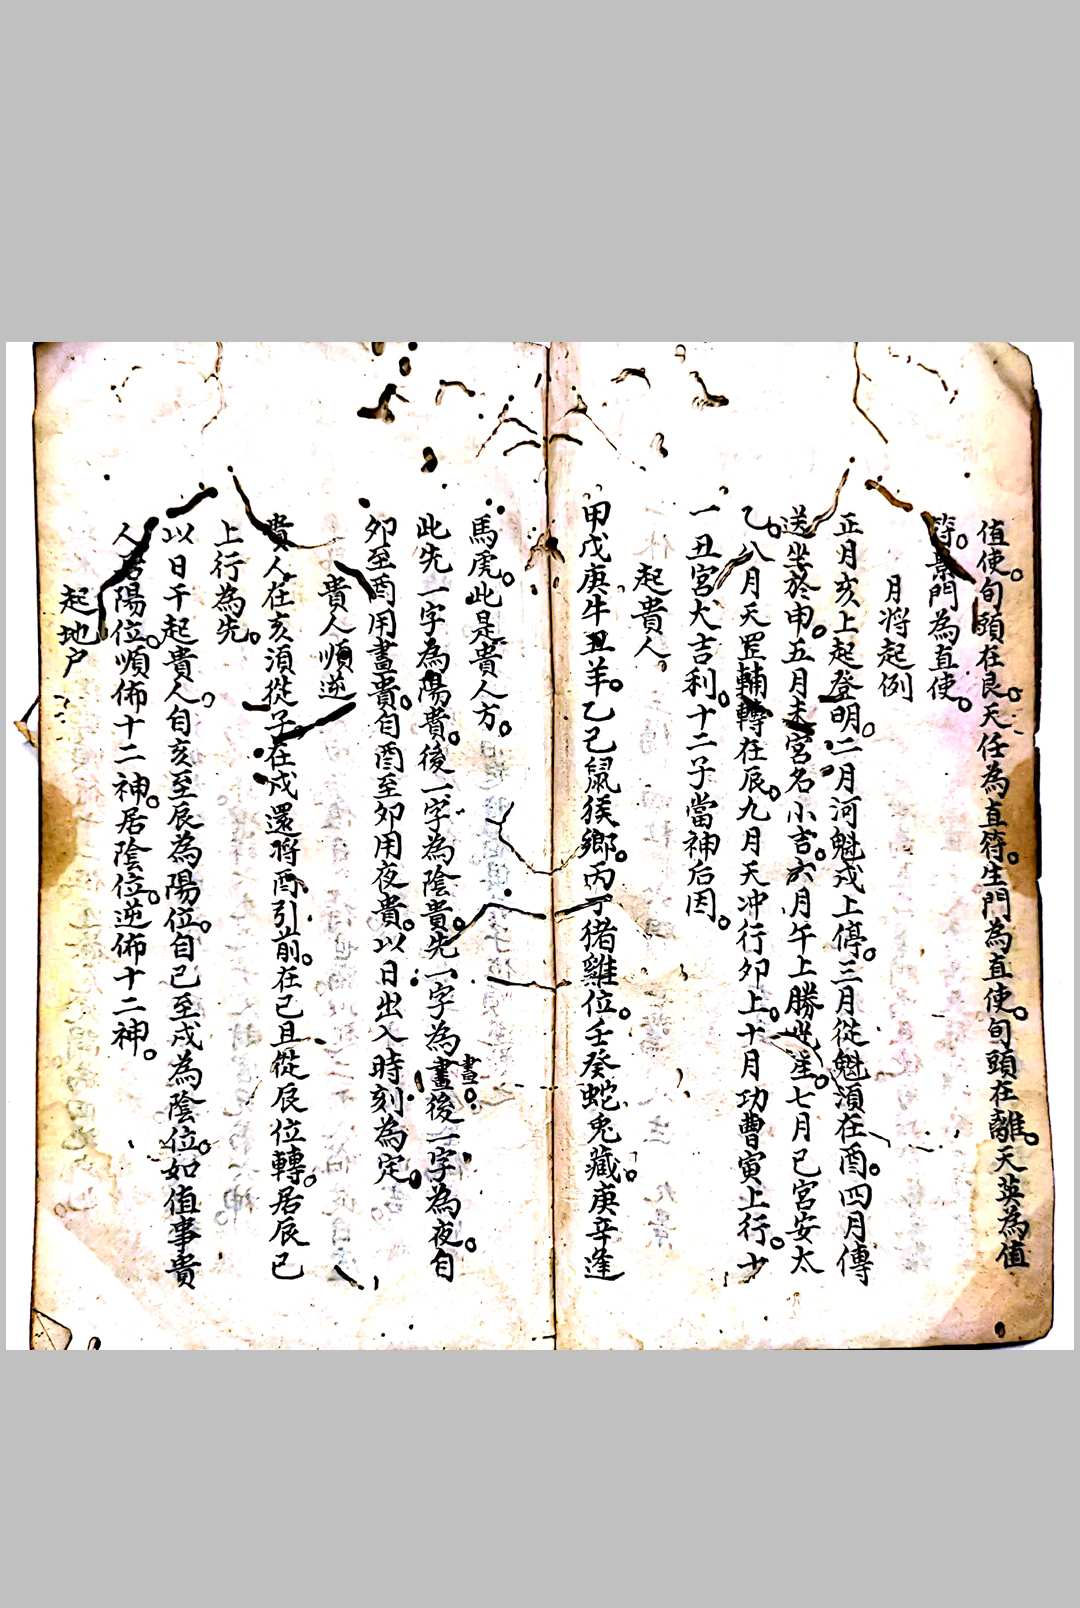 值使。旬頭在艮。天任為直符。生門為直使。旬頭在離。天英為值
符。景門為直使。
月將起例
正月亥上起登明。二月河魁戌上停。三月從魁湏在酉。四月傳
送坐於申。五月未宮名小吉。六月午上勝光。七月巳宮安太
乙。八月天罡輔轉在辰。九月天冲行夘上。十月功曹寅上行。十
一丑宮大吉利。十二子當神后因。
起貴人。
甲戊庚牛丑羊。乙己鼠猴鄉。丙丁猪雞位。壬癸蛇兔藏。庚辛逢
馬虎。此是貴人方。
此先一字為陽貴。後一字為陰貴。先一字為晝。後一字為夜。自
夘至酉用晝貴。自酉至夘用夜貴。以日出入時刻為定。
貴人順逆
貴人在亥須從子。在戌還將酉引前。在巳且從辰位轉。居辰巳
上行為先。
以日干起貴人。自亥至辰為陽位。自巳至戌為陰位。如值事貴
人居陽位。順佈十二神。居陰位。逆佈十二神。
起地户